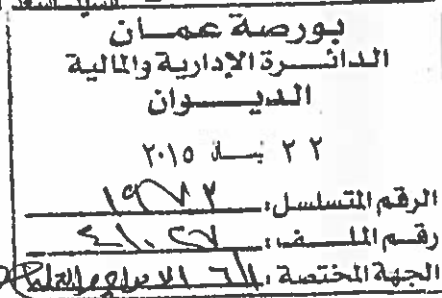 السيد اسعد
بورصة عمان
الدائرة الإدارية والمالية
الديوان
٢٢ نيسان ٢٠١٥
الرقم المتسلسل: ١٩٧٢
رقم الملف: ٤١٠٢٧
الجهة المختصة: